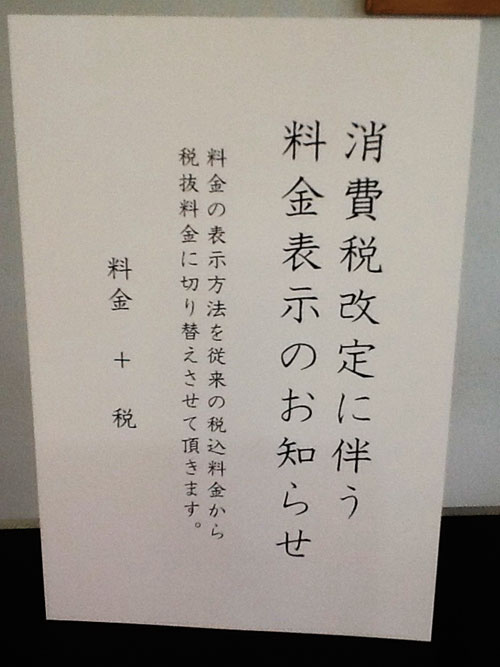 消費税改定に伴う
料金表示のお知らせ
料金の表示方法を従来の税込料金から
税抜料金に切り替えさせて頂きます。
料金 + 税